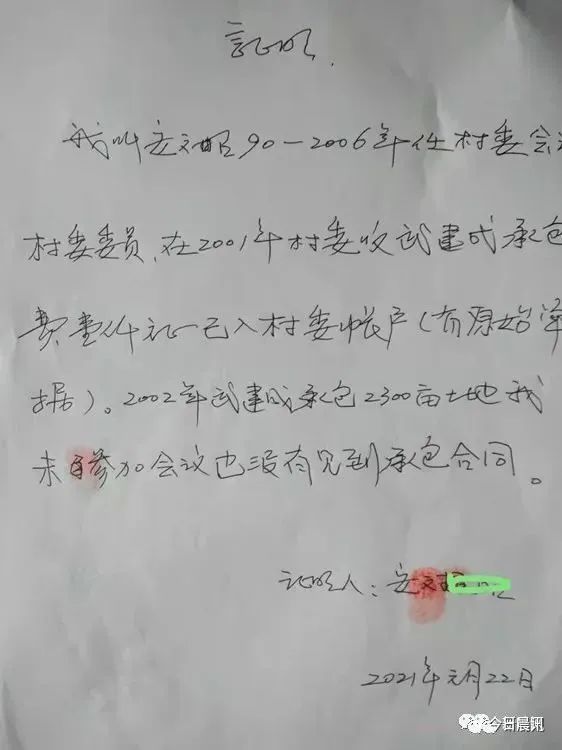 证明.
我叫 90—2006年任村委会
村委委员,在2001年村委收武建成承包
费 已入村委帐户(有原始
据)。2002年武建成承包2300亩土地我
未参加会议也没有见到承包合同。
证明人:
2021年元月22日
今日晨讯